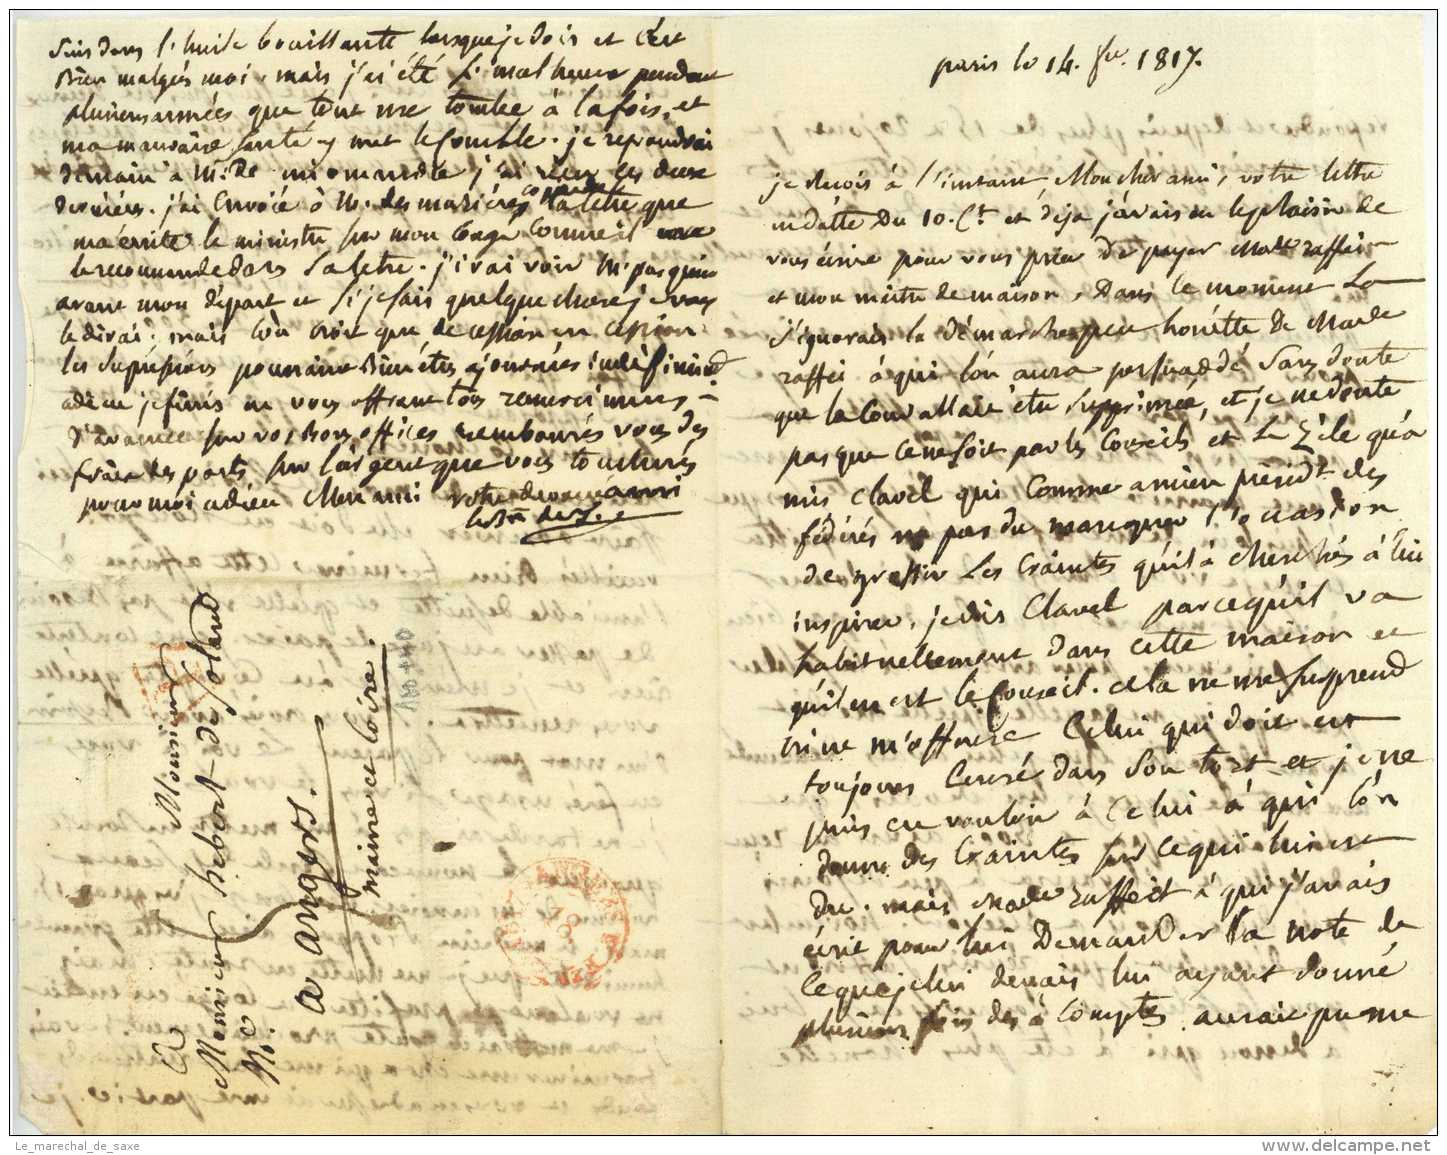 paris le 14. fer. 1817.
je reçois à l'instant, Mon cher ami, votre lettre
en datte Du 10. Ct. et deja j'avais eu le plaisir de
vous écrire pour vous prier de payer Made raffei
et mon maitre de maison, Dans le moment La
j'ignorais la démarche peu honête de Made
raffei à qui l'on aura persuaddé sans doute
que la Cour allait être supprimée, et je ne doute
pas que ce ne soit par les Conseils et Le Zêle qu'a
mis Clavel qui comme ancien présidt des
fédérés n'a pas du manquer l'occasion
de grossir Les Craintes qu'il à cherchés à lui
inspirer. je dis Clavel parcequ'il va
habituellement dans cette maison et
qu'il en est le Conseil. cela ne me surprend
ni ne m'offense Celui qui doit est
toujours Censé dans son tort et je ne
puis en vouloir à celui à qui l'on
donne des Craintes sur ce qui lui est
du. mais Made raffeit à qui j'avais
écrit pour lui Demander la note de
ce que je lui devais lui ayant donné
plusieurs fois des à Comptes aurait pu me
suis dans l'huile bouillante lorsque je dois et c'est
Bien malgrés moi. mais j'ai été si malheureux pendant
plusieurs années que tout me tombe à la fois, et
ma mauvaise santé y met le Comble. je repondrai
demain à Mr. De miomandre j'ai reçu ces deux
dernières. j'ai Envoié à Mr. desmazières copie de la lettre que
m'a écrite le ministre sur mon Congé
la recommande dans sa lettre. j'irai voir Mr. pasquier
avant mon départ et si je sais quelque chose je vous
le dirai; mais l'on croit que de cession en cession
les supressions pourraient Bien êtres ajournées indéfinimt
adieu je finis en vous offrant tous remerciments
d'avance sur vos Bons offices remboursés vous des
frais des ports sur l'argent que vous toucherés
pour moi adieu Mon ami votre devoué ami
A
Monsieur
Monsieur hebert de Soland
Mr.
a angers.
maine et loire.
Le_marechal_de_saxe
www.delcampe.net